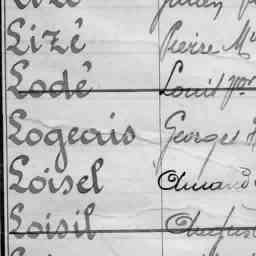 Lizé Pierre M
Lodé Louis
Logeais Georges
Loisel Amand
Loisil August